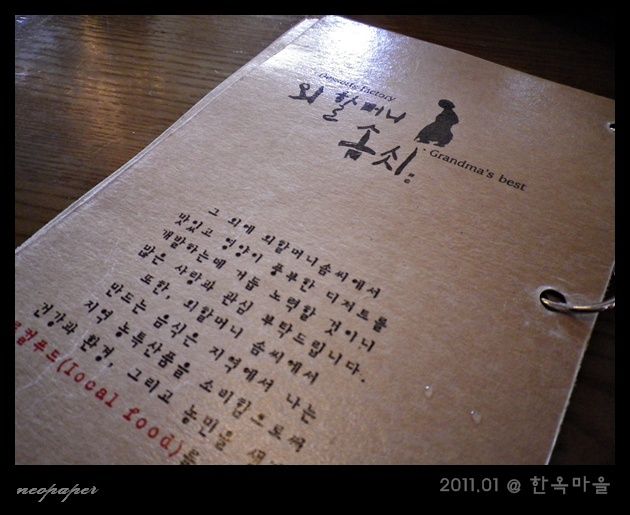 Desserts factory
외할머니
솜씨.
Grandma's best
그 외에 외할머니솜씨에서
맛있고 영양이 풍부한 디저트를
개발하는데 거듭 노력할 것이니
많은 사랑과 관심 부탁드립니다.
또한, 외할머니 솜씨에서
만드는 음식은 지역에서 나는
지역 농특산품을 소비함으로써
건강과 환경, 그리고 농민을 생
컬푸드(local food)를
neopaper
2011.01 @ 한옥마을